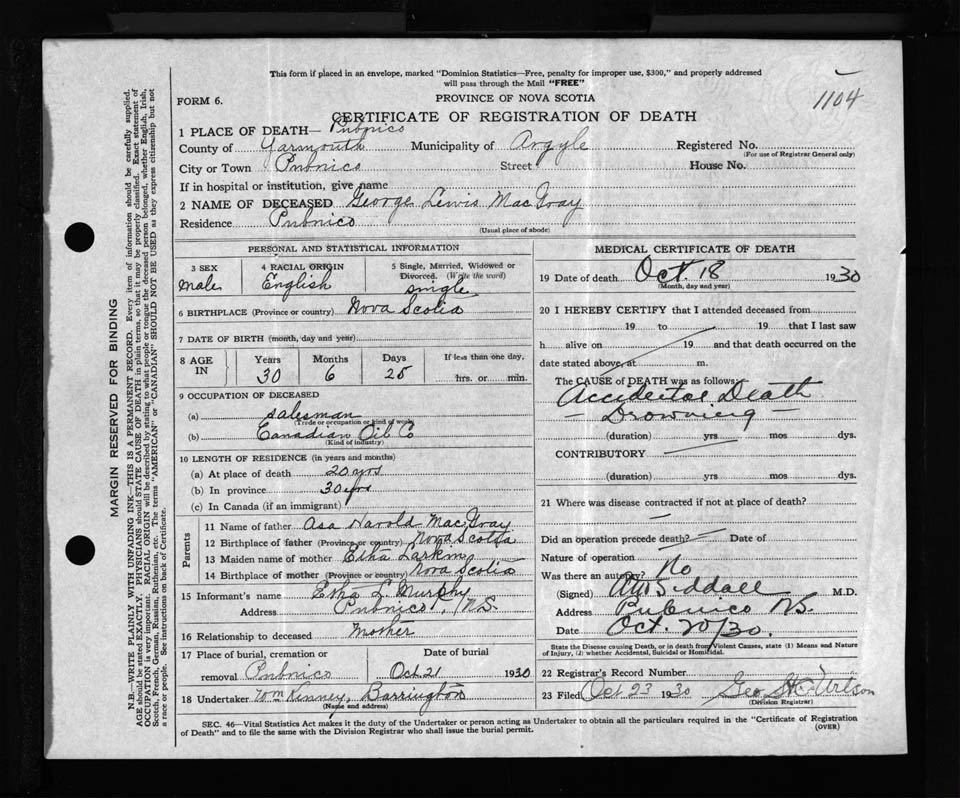 This form if placed in an envelope, marked "Dominion Statistics—Free, penalty for improper use, $300," and properly addressed
will pass through the Mail "FREE"
1104
FORM 6.
PROVINCE OF NOVA SCOTIA
CERTIFICATE OF REGISTRATION OF DEATH
1 PLACE OF DEATH— Pubnico
County of Yarmouth Municipality of Argyle Registered No.
(For use of Registrar General only)
City or Town Pubnico Street House No.
If in hospital or institution, give name
2 NAME OF DECEASED George Lewis MacGray
Residence Pubnico
(Usual place of abode)
PERSONAL AND STATISTICAL INFORMATION
3 SEX 4 RACIAL ORIGIN 5 Single, Married, Widowed or
Divorced. (Write the word)
male English single
6 BIRTHPLACE (Province or country) Nova Scotia
7 DATE OF BIRTH (month, day and year)
8 AGE IN Years Months Days If less than one day,
30 6 25 hrs. or min.
9 OCCUPATION OF DECEASED
(a) salesman
(Trade or occupation or kind of work)
(b) Canadian Oil Co
(Kind of industry)
10 LENGTH OF RESIDENCE (in years and months)
(a) At place of death 20 yrs
(b) In province 30 yrs
(c) In Canada (if an immigrant)
Parents
11 Name of father Asa Harold MacGray
12 Birthplace of father (Province or country) Nova Scotia
13 Maiden name of mother Etha Larkin
14 Birthplace of mother (Province or country) Nova Scotia
15 Informant's name Etha L. Murphy
Address Pubnico, N.S.
16 Relationship to deceased Mother
17 Place of burial, cremation or Date of burial
removal Pubnico Oct 21 1930
18 Undertaker Wm Kinney, Barrington
(Name and address)
MEDICAL CERTIFICATE OF DEATH
19 Date of death Oct. 18 1930
(Month, day and year)
20 I HEREBY CERTIFY that I attended deceased from
19 to 19 that I last saw
h alive on 19 and that death occurred on the
date stated above, at m.
The CAUSE of DEATH was as follows:
Accidental Death
— Drowning —
(duration) yrs mos dys.
CONTRIBUTORY
(duration) yrs mos dys.
21 Where was disease contracted if not at place of death?
—
Did an operation precede death? Date of
Nature of operation
Was there an autopsy? No
(Signed) Siddall M.D.
Address Pubnico N.S.
Date Oct. 20/30.
State the Disease causing Death, or in death from Violent Causes, state (1) Means and Nature
of Injury, (2) whether Accidental, Suicidal or Homicidal.
22 Registrar's Record Number
23 Filed Oct 23 1930 Geo
(Division Registrar)
SEC. 46—Vital Statistics Act makes it the duty of the Undertaker or person acting as Undertaker to obtain all the particulars required in the "Certificate of Registration
of Death" and to file the same with the Division Registrar who shall issue the burial permit.
(OVER)
MARGIN RESERVED FOR BINDING
N.B.—WRITE PLAINLY WITH UNFADING INK—THIS IS A PERMANENT RECORD. Every item of information should be carefully supplied.
AGE should be stated EXACTLY. PHYSICIANS should STATE CAUSE OF DEATH in plain terms, so that it may be properly classified. Exact statement of
OCCUPATION is very important. RACIAL ORIGIN will be described by stating to what people or tongue the deceased person belonged, whether English, Irish,
Scotch, French, German, Russian, Ruthenian, etc. The terms "AMERICAN" or "CANADIAN" SHOULD NOT BE USED as they express citizenship but not
a race or people. See instructions on back of Certificate.